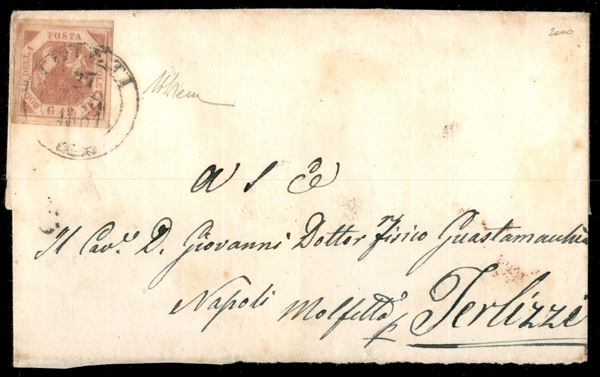 2000
POSTA
BOLLO DELLA
G
27
1861
A S E
Il Cav.e D. Giovanni Dottor Fisico Guastamacchia
Napoli Molfetta p Terlizzi